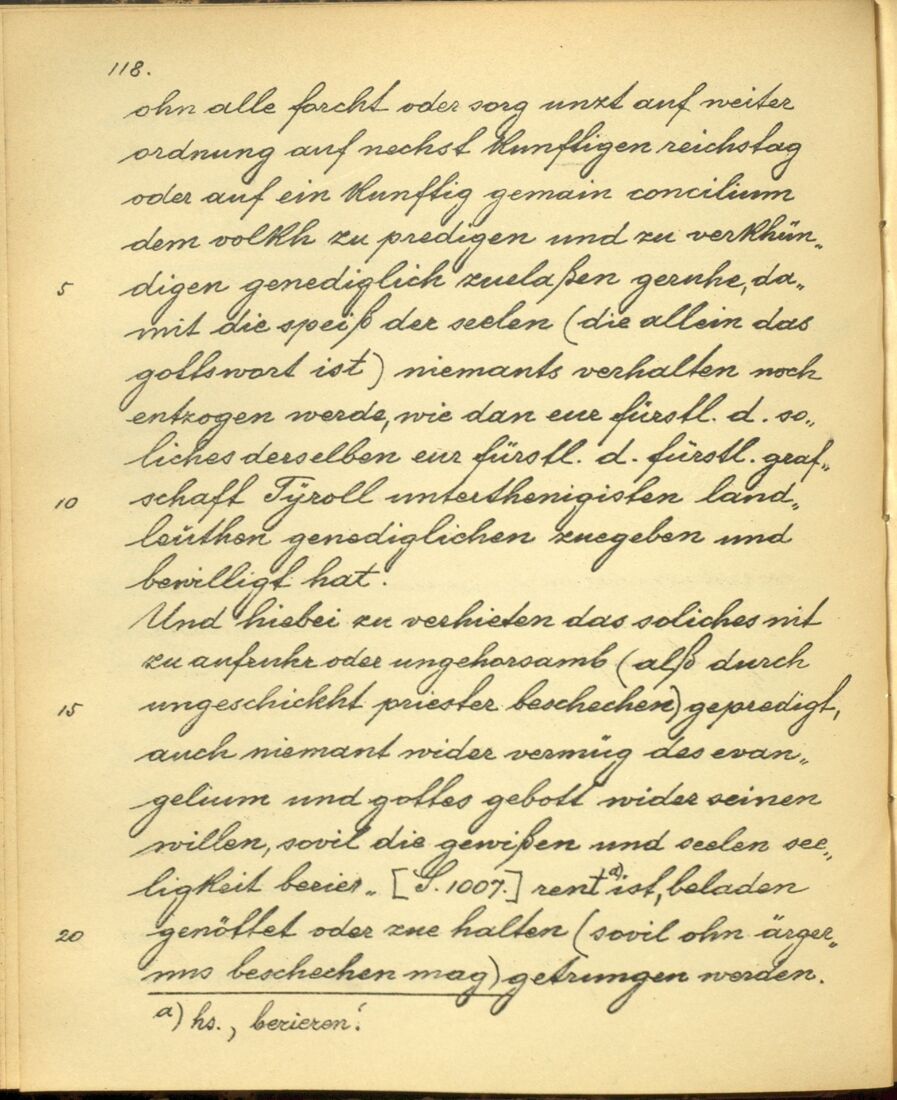 118.
ohn alle forcht oder sorg unzt auf weiter
ordnung auf nechst kunftigen reichstag
oder auf ein kunftig gemain concilium
dem volkh zu predigen und zu verkhün„
5 digen genediglich zuelaßen geruhe, da„
mit die speiß der seelen (die allein das
gottswort ist) niemants verhalten noch
entzogen werde, wie dan eur fürstl. d. so„
liches derselben eur fürstl. d. fürstl. graf„
10 schaft Tÿroll unterthenigisten land„
leüthen genediglichen zuegeben und
bewilligt hat.
Und hiebei zu verhieten das soliches nit
zu aufruhr oder ungehorsamb (alß durch
15 ungeschickht priester beschechen) gepredigt,
auch niemant wider vermüg des evan„
gelium und gottes gebott wider seinen
willen, sovil die gewißen und seelen see„
ligkeit berier„ [S. 1007.] rent a) ist, beladen
20 genöttet oder zue halten (sovil ohn ärger„
nus beschechen mag) getrungen werden.
a) hs., berieren!